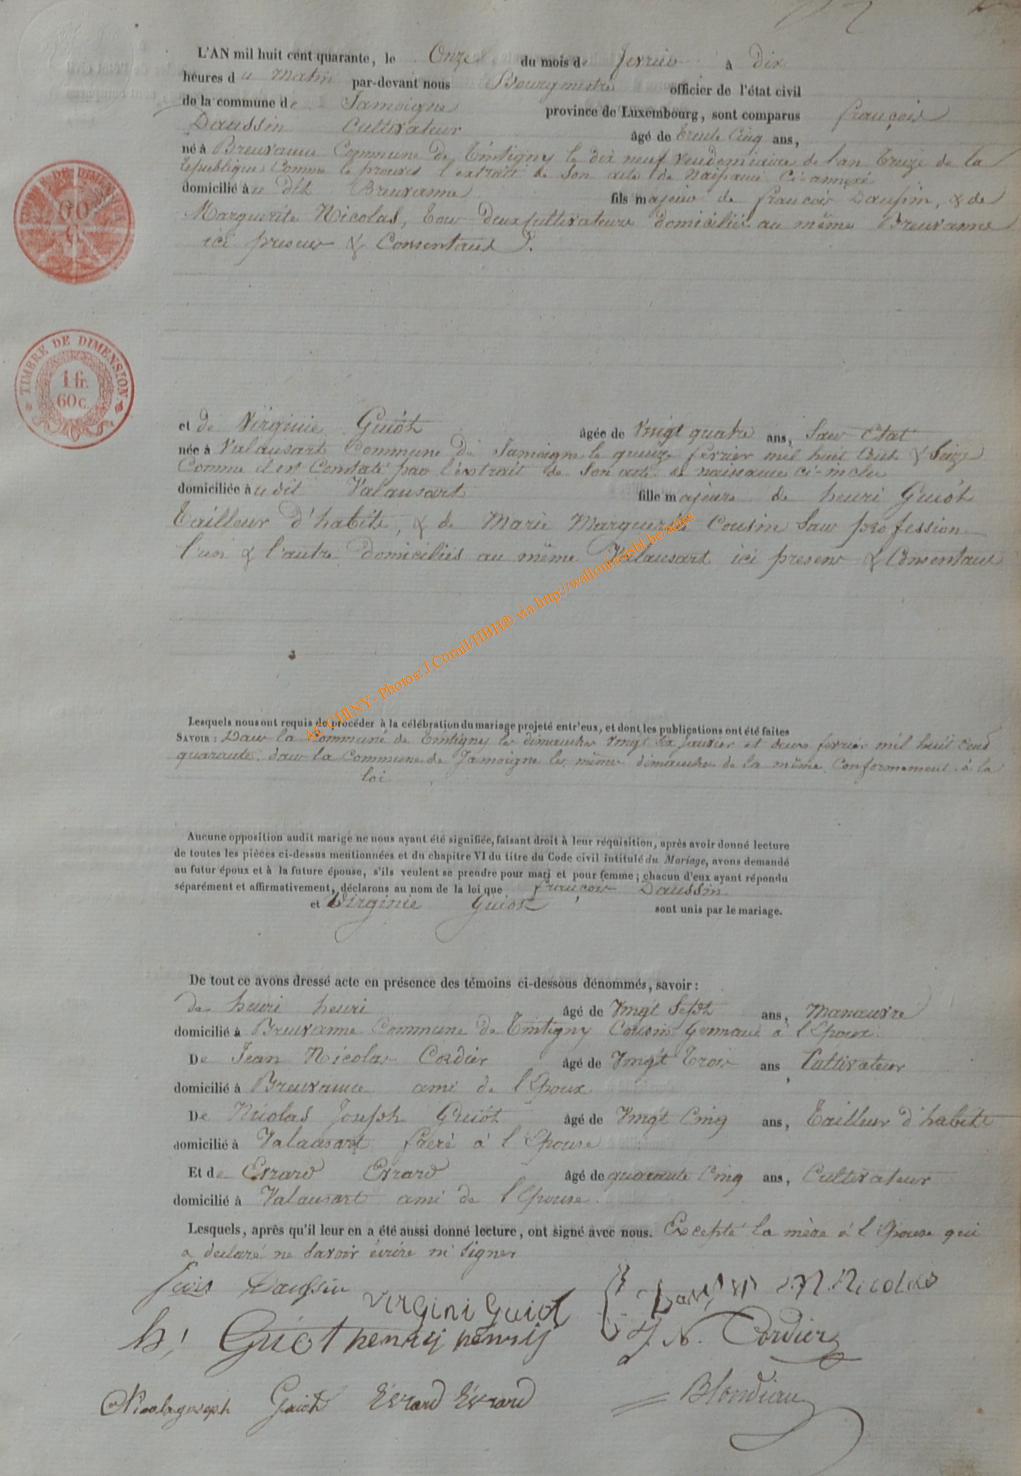 L'AN mil huit cent quarante, le Onze du mois de fevrier à dix
heures du matin par-devant nous Bourgmestre officier de l'état civil
de la commune de Jamoigne province de Luxembourg, sont comparus françois
Daussin Cultivateur âgé de trente Cinq ans,
né à Breuvanne Commune de Tintigny le dix neuf vendemiaire de l'an treize de la
république, Comme le prouve l'extrait de son acte de naissance Ci-annexé
domicilié au dit Breuvanne fils majeur de françois Daussin, & de
Marguerite Nicolas, tous deux Cultivateurs domiciliés au même Breuvanne
ici présens & Consentans.
TIMBRE DE DIMENSION
60
TIMBRE DE DIMENSION
1 fr.
60 c.
et de Virginie Guiot âgée de vingt quatre ans, Sans Etat
née à Valansart Commune de Jamoigne le quinze février mil huit Cent & Seize
Comme il est Constaté par l'extrait de Son acte de naissance ci-inclu
domiciliée au dit Valansart fille majeure de henri Guiot
tailleur d'habits, & de Marie Marguerite Cousin Sans profession
l'un & l'autre domiciliés au même Valansart ici présens & Consentans
au CHINY - Photos: J.Cornil/HBH® via http://wallonica.phl.be
Lesquels nous ont requis de procéder à la célébration du mariage projeté entr'eux, et dont les publications ont été faites
SAVOIR : Dans la Commune de Tintigny les dimanches vingt six Janvier et deux février mil huit Cent
quarante. dans la Commune de Jamoigne les mêmes dimanches de la même Conformement à la
loi
Aucune opposition audit marige ne nous ayant été signifiée, faisant droit à leur réquisition, après avoir donné lecture
de toutes les pièces ci-dessus mentionnées et du chapitre VI du titre du Code civil intitulé du Mariage, avons demandé
au futur époux et à la future épouse, s'ils veulent se prendre pour mari et pour femme ; chacun d'eux ayant répondu
séparément et affirmativement, déclarons au nom de la loi que françois Daussin
et Virginie Guiot sont unis par le mariage.
De tout ce avons dressé acte en présence des témoins ci-dessous dénommés, savoir :
de henri henri âgé de Vingt Sept ans, Manœuvre
domicilié à Breuvanne Commune de Tintigny Cousin Germain à l'Epoux.
De Jean Nicolas Cordier âgé de Vingt trois ans Cultivateur
domicilié à Breuvanne ami de l'Epoux
De Nicolas Joseph Guiot âgé de Vingt Cinq ans, tailleur d'habits
domicilié à Valansart frère à l'Epouse
Et de Evrard Evrard âgé de quarante Cinq ans, Cultivateur
domicilié à Valansart ami de l'Epouse.
Lesquels, après qu'il leur en a été aussi donné lecture, ont signé avec nous. Excepté la mère à l'Epouse qui
a declaré ne Savoir écrire ni Signer
fcois Daussin virgini Guiot M. Nicolas
h, Guiot henry henry J. N. Cordier
Nicolas joseph Guiot Evrard Evrard Blondiau